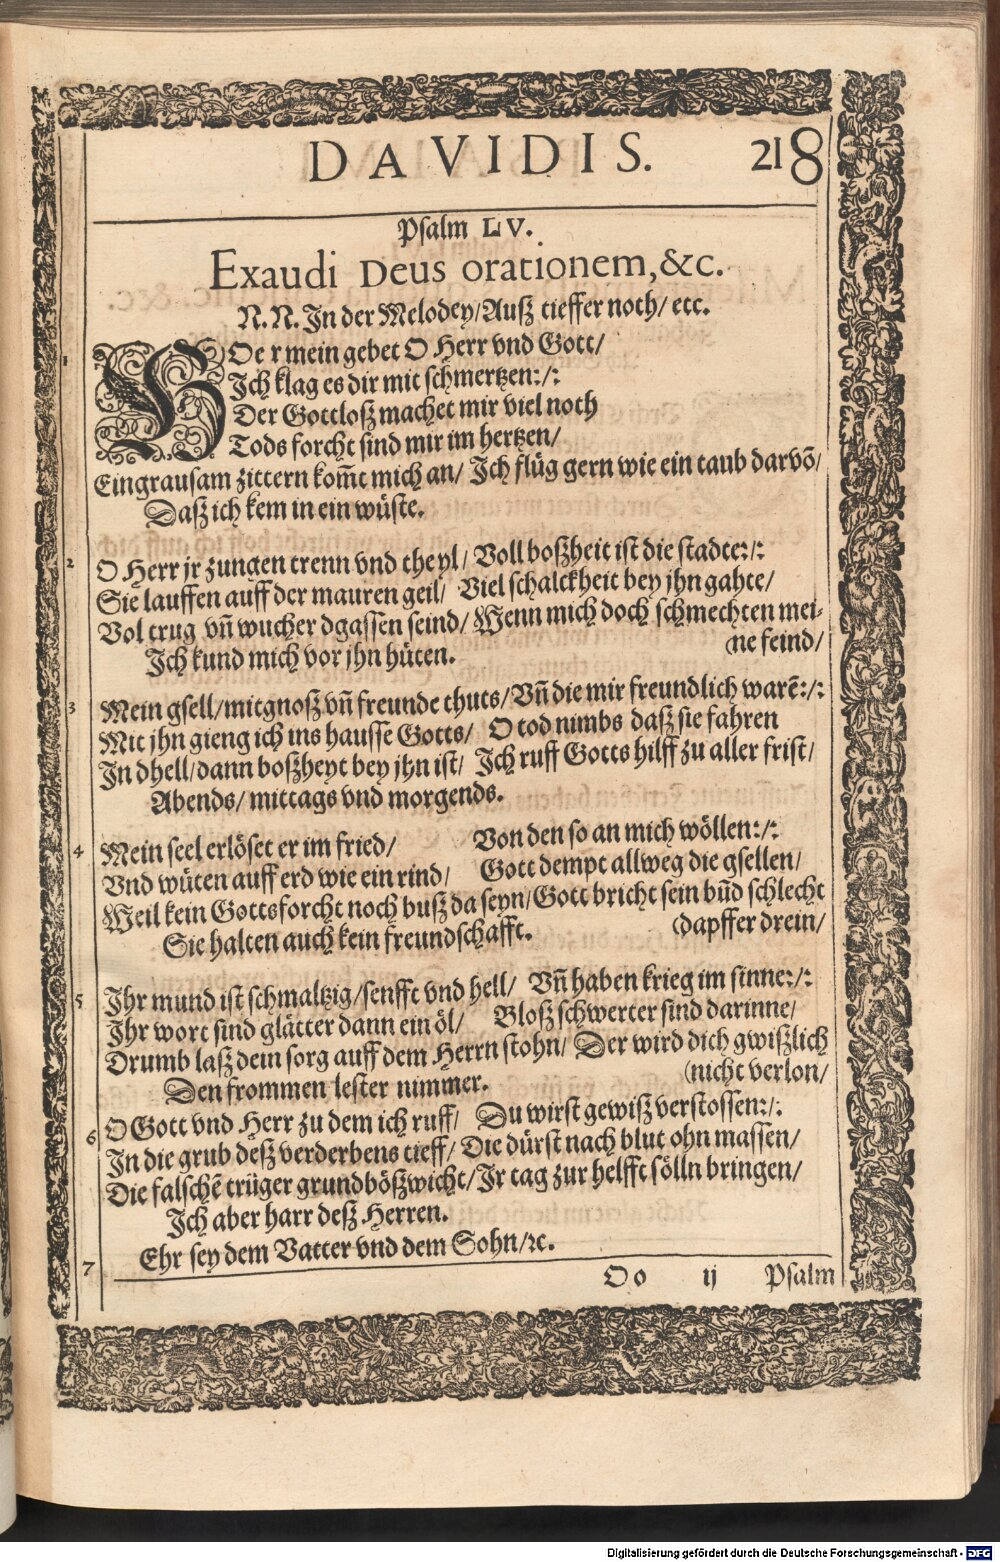 DAVIDIS. 218
Psalm LV.
Exaudi Deus orationem, &c.
N. N. In der Melodey/ Auß tieffer noth/ etc.
1 HOe r mein gebet O Herr vnd Gott/
Ich klag es dir mit schmertzen:/:
Der Gottloß machet mir viel noth
Tods forcht sind mir im hertzen/
Ein grausam zittern kom̃t mich an/ Ich flüg gern wie ein taub darvō/
Daß ich kem in ein wüste.
2 O Herr jr zungen trenn vnd theyl/ Voll boßheit ist die stadte:/:
Sie lauffen auff der mauren geil/ Viel schalckheit bey jhn gahte/
Vol trug vñ wucher dgassen seind/ Wenn mich doch schmechten mei-
ne feind/
Ich kund mich vor jhn hüten.
3 Mein gsell/ mitgnoß vñ freunde thuts/ Vñ die mir freundlich warē:/:
Mit jhn gieng ich ins hausse Gotts/ O tod nimbs daß sie fahren
In dhell/ dann boßheyt bey jhn ist/ Ich ruff Gotts hilff zu aller frist/
Abends/ mittags vnd morgends.
4 Mein seel erlöset er im fried/ Von den so an mich wöllen:/:
Vnd wüten auff erd wie ein rind/ Gott dempt allweg die gsellen/
Weil kein Gottsforcht noch buß da seyn/ Gott bricht sein būd schlecht
(dapffer drein/
Sie halten auch kein freundschafft.
5 Ihr mund ist schmaltzig/ senfft vnd hell/ Vñ haben krieg im sinne:/:
Ihr wort sind glätter dann ein öl/ Bloß schwerter sind darinne/
Drumb laß dein sorg auff dem Herrn stohn/ Der wird dich gwißlich
(nicht verlon/
Den frommen lester nimmer.
6 O Gott vnd Herr zu dem ich ruff/ Du wirst gewiß verstossen:/:
In die grub deß verderbens tieff/ Die dürst nach blut ohn massen/
Die falschē trüger grundbößwicht/ Ir tag zur helfft sölln bringen/
Ich aber harr deß Herren.
7 Ehr sey dem Vatter vnd dem Sohn/ ꝛc.
Oo ij Psalm
Digitalisierung gefördert durch die Deutsche Forschungsgemeinschaft - DFG